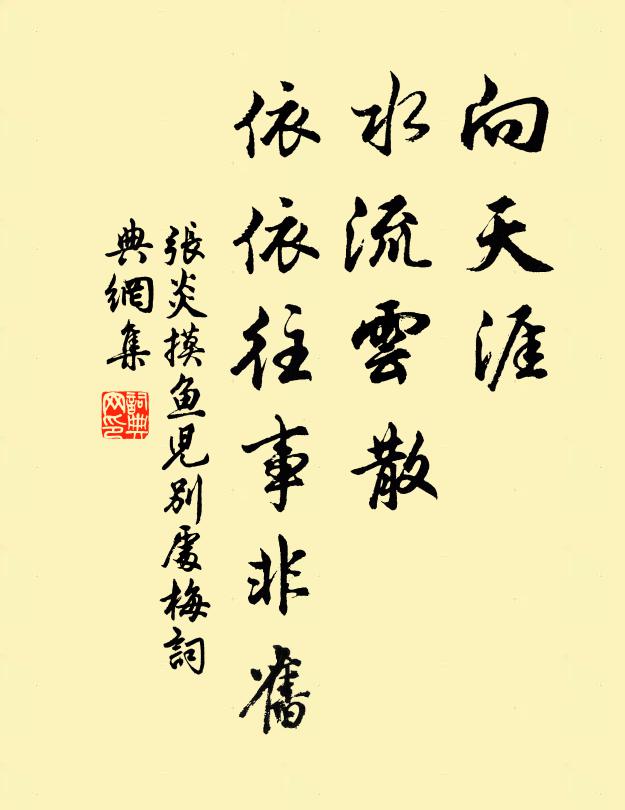 向天涯
水流雲散
依依往事非舊
張炎摸鱼児別處梅詞
典網集
詞典网印